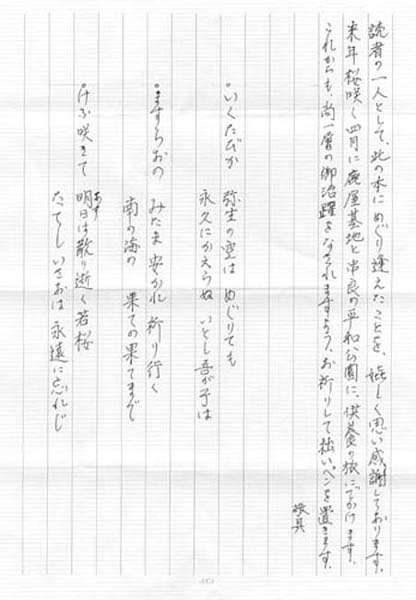 読者の一人として、此の本にめぐり逢えたことを、嬉しく思い感謝しております。
来年桜咲く四月に鹿屋基地と串良の平和公園に、供養の旅にでかけます。
これからも、尚一層の御活躍をなされますよう、お祈りして拙いペンを置きます。
敬具
。いくたびか 弥生の空は めぐりても
永久にかえらぬ いとし吾が子は
。ますらおの みたま安かれ 祈り行く
南の海の 果ての果てまで
。けふ咲きて 明日は散り逝く若桜
あす
たてしいさおは 永遠に忘れじ